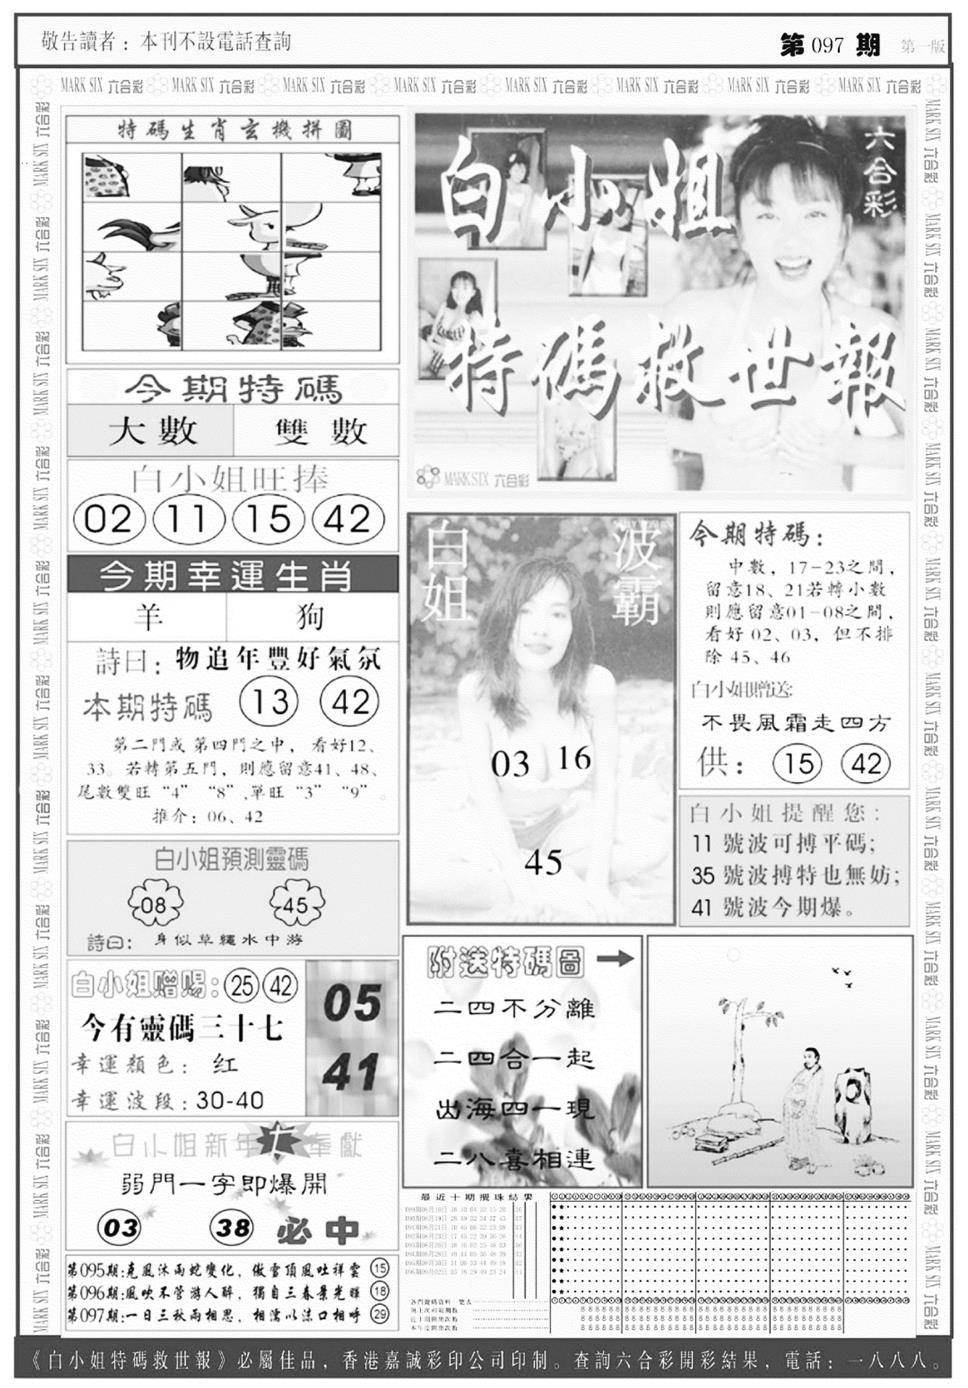 敬告讀者：本刊不設電話查詢
第 097 期 第一版
MARK SIX 六合彩 MARK SIX 六合彩 MARK SIX 六合彩 MARK SIX 六合彩 MARK SIX 六合彩 MARK SIX 六合彩 MARK SIX 六合彩 MARK SIX 六合彩
特碼生肖玄機拼圖
今期特碼
大數 雙數
白小姐旺捧
02 11 15 42
今期幸運生肖
羊 狗
詩曰：物追年豐好氣氛
本期特碼 13 42
第二門或第四門之中，看好12、
33。若轉第五門，則應留意41、48、
尾數雙旺“4”“8”,單旺“3”“9”。
推介：06、42
白小姐預測靈碼
08 45
詩曰：身似草繩水中游
白小姐贈賜：25 42
今有靈碼三十七
幸運顏色：红
幸運波段：30-40
05
41
白小姐新年奉獻
弱門一字即爆開
03 38 必中
第095期:克風沐雨蛇變化，傲雪頂風吐祥雲 15
第096期:風吹不管游人醉，獨自三春景光輝 18
第097期:一日三秋兩相思，相濡以沫口相呼 29
六合彩
白小姐
特碼救世報
MARK SIX 六合彩
白姐 波霸
03 16
45
今期特碼：
中數，17-23之間，
留意18、21若轉小數
則應留意01-08之間，
看好 02、03，但不排
除 45、46
白小姐贈送:
不畏風霜走四方
供：15 42
白小姐提醒您：
11 號波可搏平碼；
35 號波搏特也無妨；
41 號波今期爆。
附送特碼圖
二四不分離
二四合一起
出海四一現
二八喜相連
最近十期攪珠結果
《白小姐特碼救世報》必屬佳品，香港嘉誠彩印公司印制。查詢六合彩開彩結果，電話：一八八八。